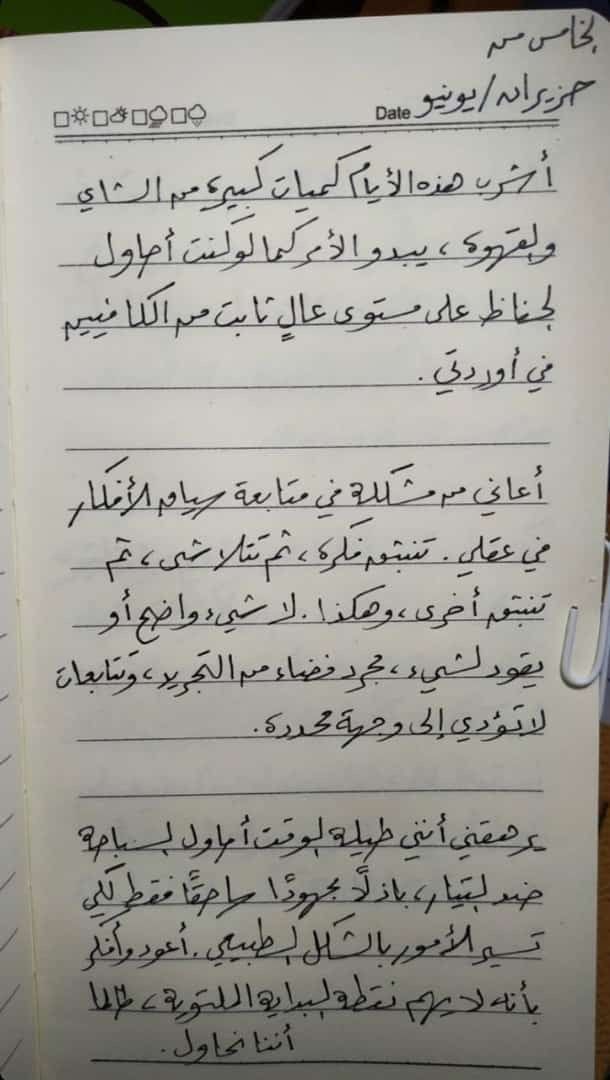 الخامس من
Date حزيران/يونيو
أشرب هذه الأيام كميات كبيرة من الشاي
والقهوة، يبدو الأمر كما لو كنت أحاول
الحفاظ على مستوى عالٍ ثابت من الكافيين
في أوردتي.
أعاني من مشكلة في متابعة سياق الأفكار
في عقلي. تنبثق فكرة، ثم تتلاشى، ثم
تنبثق أخرى، وهكذا. لا شيء واضح أو
يقود لشيء، مجرد فضاء من التجريد، وتتابعات
لا تؤدي إلى وجهة محددة.
يرهقني أنني طيلة الوقت أحاول السباحة
ضد التيار، باذلًا مجهودًا ساحقًا فقط لكي
تسير الأمور بالشكل الطبيعي. أعود وأفكر
بأنه لا يهم نقطة البداية الملتوية، طالما
أننا نحاول.